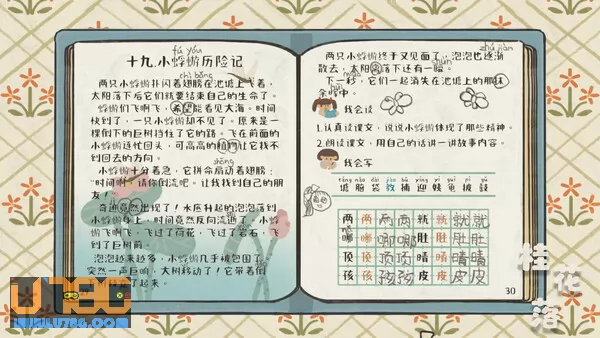 fú yóu
十九.小蜉蝣历险记
chì bǎng
两只小蜉蝣扑闪着翅膀在池塘上飞着,
太阳落下后它们就要结束自己的生命了。
蜉蝣们飞啊飞,希望能看见大海。时间
快到了,一只小蜉蝣却不见了。原来是一
棵倒下的巨树挡住了它的路。飞在前面的
小蜉蝣连忙回头,可高高的植物让它找不
到回去的方向。
小蜉蝣十分着急,它拼命扇动着翅膀:
“时间啊,请你倒流吧。让我找到自己的朋
友!”
奇迹竟然出现了!水底升起的泡泡落到
小蜉蝣身上,时间竟然反向流逝了。小蜉
蝣飞啊飞,飞过了荷花,飞过了岩石,飞
到了巨树前。
泡泡越来越多,小蜉蝣几乎被包围了
突然一声巨响,大树移动了!它带着倒
起来了。
两只小蜉蝣终于又见面了,泡泡也逐渐
散去,太阳落下还有一瞬。
下一刻,它们一起消失在池塘上的那抹
余晖中。
我会读
1.认真读课文,说说小蜉蝣体现了那些精神。
2.朗读课文,用自己的话讲一讲故事内容。
我会写
塘脑袋教捕迎姨龟披鼓
两两两两就就就就
哪哪哪哪肚肚肚肚
顶顶顶顶晴晴晴晴
孩孩孩孩皮皮皮皮
30
桂花落